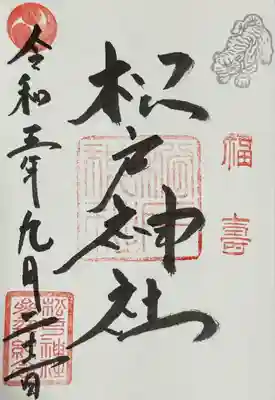 福壽
松戸神社
令和三年九月二十一日